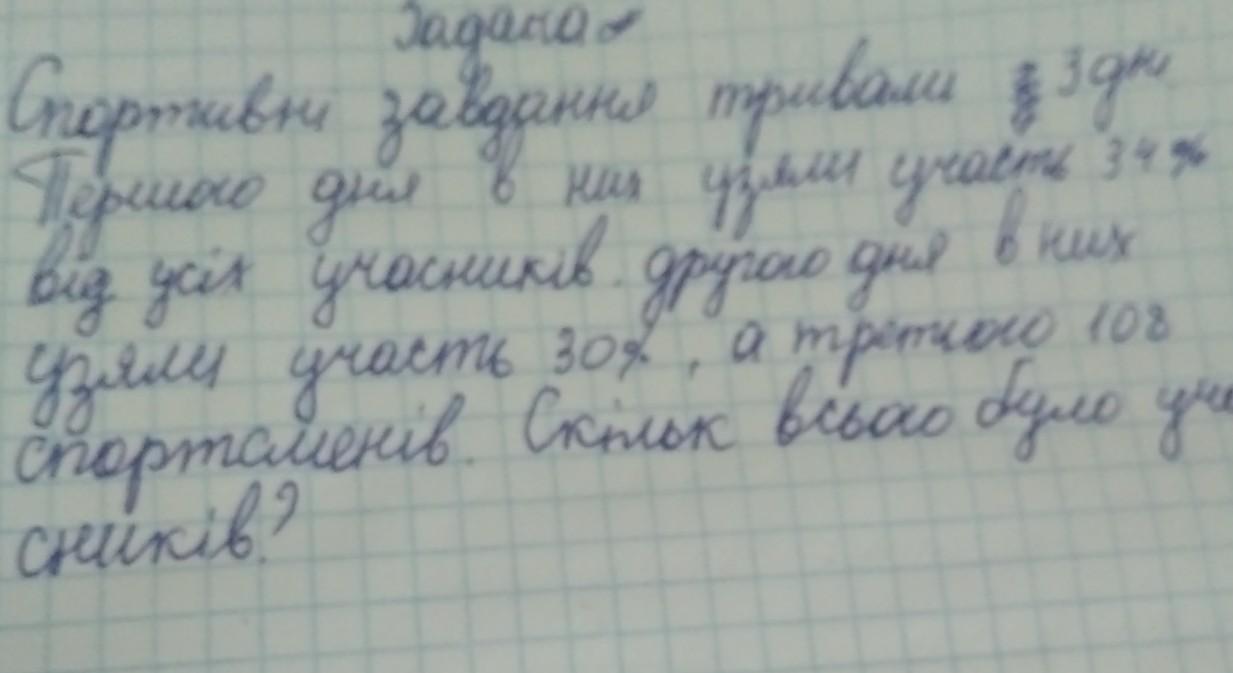 Задача
Спортивні завдання тривали 3 дні
Першого дня в них узяли участь 34%
від усіх учасників. другого дня в них
узяли участь 30%, а третього 108
спортсменів. Скільк всього було уча
сників?